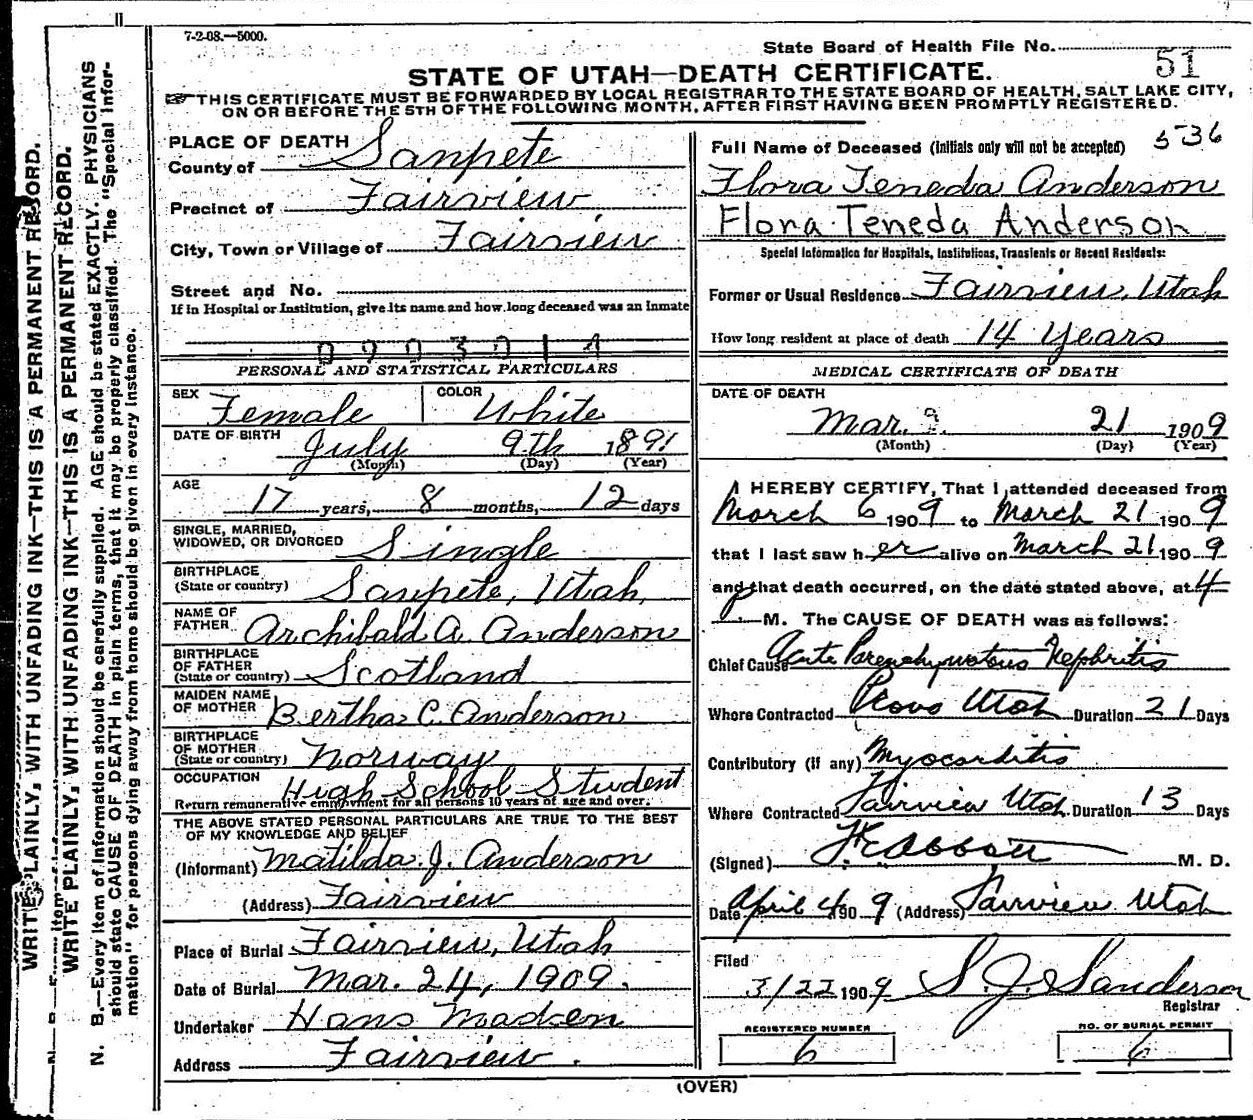 7-2-08.—5000.
State Board of Health File No. 51
STATE OF UTAH—DEATH CERTIFICATE.
THIS CERTIFICATE MUST BE FORWARDED BY LOCAL REGISTRAR TO THE STATE BOARD OF HEALTH, SALT LAKE CITY,
ON OR BEFORE THE 5TH OF THE FOLLOWING MONTH, AFTER FIRST HAVING BEEN PROMPTLY REGISTERED.
WRITE PLAINLY, WITH UNFADING INK—THIS IS A PERMANENT RECORD.
WRITE PLAINLY, WITH UNFADING INK—THIS IS A PERMANENT RECORD.
N. B.—Every item of information should be carefully supplied. AGE should be stated EXACTLY. PHYSICIANS
should state CAUSE OF DEATH in plain terms, that it may be properly classified. The "Special Infor-
mation" for persons dying away from home should be given in every instance.
PLACE OF DEATH
County of Sanpete
Precinct of Fairview
City, Town or Village of Fairview
Street and No.
If in Hospital or Institution, give its name and how long deceased was an inmate
PERSONAL AND STATISTICAL PARTICULARS
SEX Female COLOR White
DATE OF BIRTH July 9th 1891
(Month) (Day) (Year)
AGE 17 years, 8 months, 12 days
SINGLE, MARRIED,
WIDOWED, OR DIVORCED Single
BIRTHPLACE
(State or country) Sanpete, Utah,
NAME OF
FATHER Archibald A. Anderson
BIRTHPLACE
OF FATHER
(State or country) Scotland
MAIDEN NAME
OF MOTHER Bertha C. Anderson
BIRTHPLACE
OF MOTHER
(State or country) Norway
OCCUPATION High School Student
Return remunerative employment for all persons 10 years of age and over.
THE ABOVE STATED PERSONAL PARTICULARS ARE TRUE TO THE BEST
OF MY KNOWLEDGE AND BELIEF
(Informant) Matilda J. Anderson
(Address) Fairview
Place of Burial Fairview, Utah
Date of Burial Mar. 24, 1909.
Undertaker Hans Madsen
Address Fairview.
536
Full Name of Deceased (Initials only will not be accepted)
Flora Teneda Anderson
Flora Teneda Anderson
Special Information for Hospitals, Institutions, Transients or Recent Residents:
Former or Usual Residence Fairview, Utah
How long resident at place of death 14 Years
MEDICAL CERTIFICATE OF DEATH
DATE OF DEATH
Mar. 21 1909
(Month) (Day) (Year)
I HEREBY CERTIFY, That I attended deceased from
March 6 1909 to March 21 1909
that I last saw her alive on March 21 1909
and that death occurred, on the date stated above, at 4
P. M. The CAUSE OF DEATH was as follows:
Chief Cause Acute Parenchymatous Nephritis
Where Contracted Provo Utah Duration 21 Days
Contributory (if any) Myocarditis
Where Contracted Fairview Utah Duration 13 Days
(Signed) M. D.
Date April 4 1909 (Address) Fairview Utah
Filed
3/22 1909 S. J. Sanderson
Registrar
REGISTERED NUMBER
6
NO. OF BURIAL PERMIT
6
(OVER)